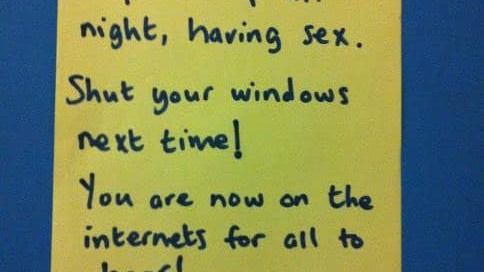 night, having sex.
Shut your windows
next time!
You are now on the
internets for all to
hear!